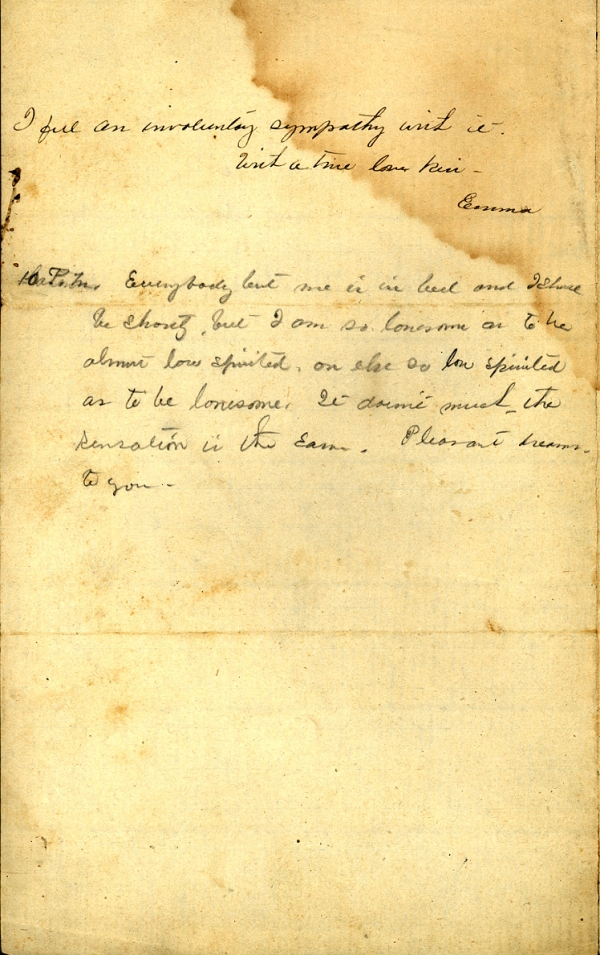 I feel an involuntary sympathy with it.
With a true lover kiss -
Emma
10 P.M. Everybody but me is in bed and I shall
be short, but I am so lonesome as to be
almost low spirited, or else so low spirited
as to be lonesome. It doesn't much - the
sensation is the same. Pleasant dreams
to you -